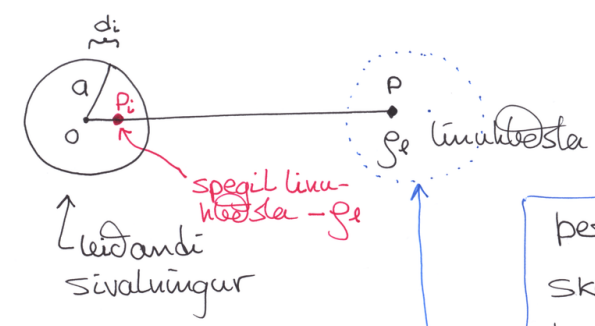 di
a
Pi
o
P
ρe línuhleðsla
spegil línu-
hleðsla -ρe
Leiðandi
sívalningur
þes
sk